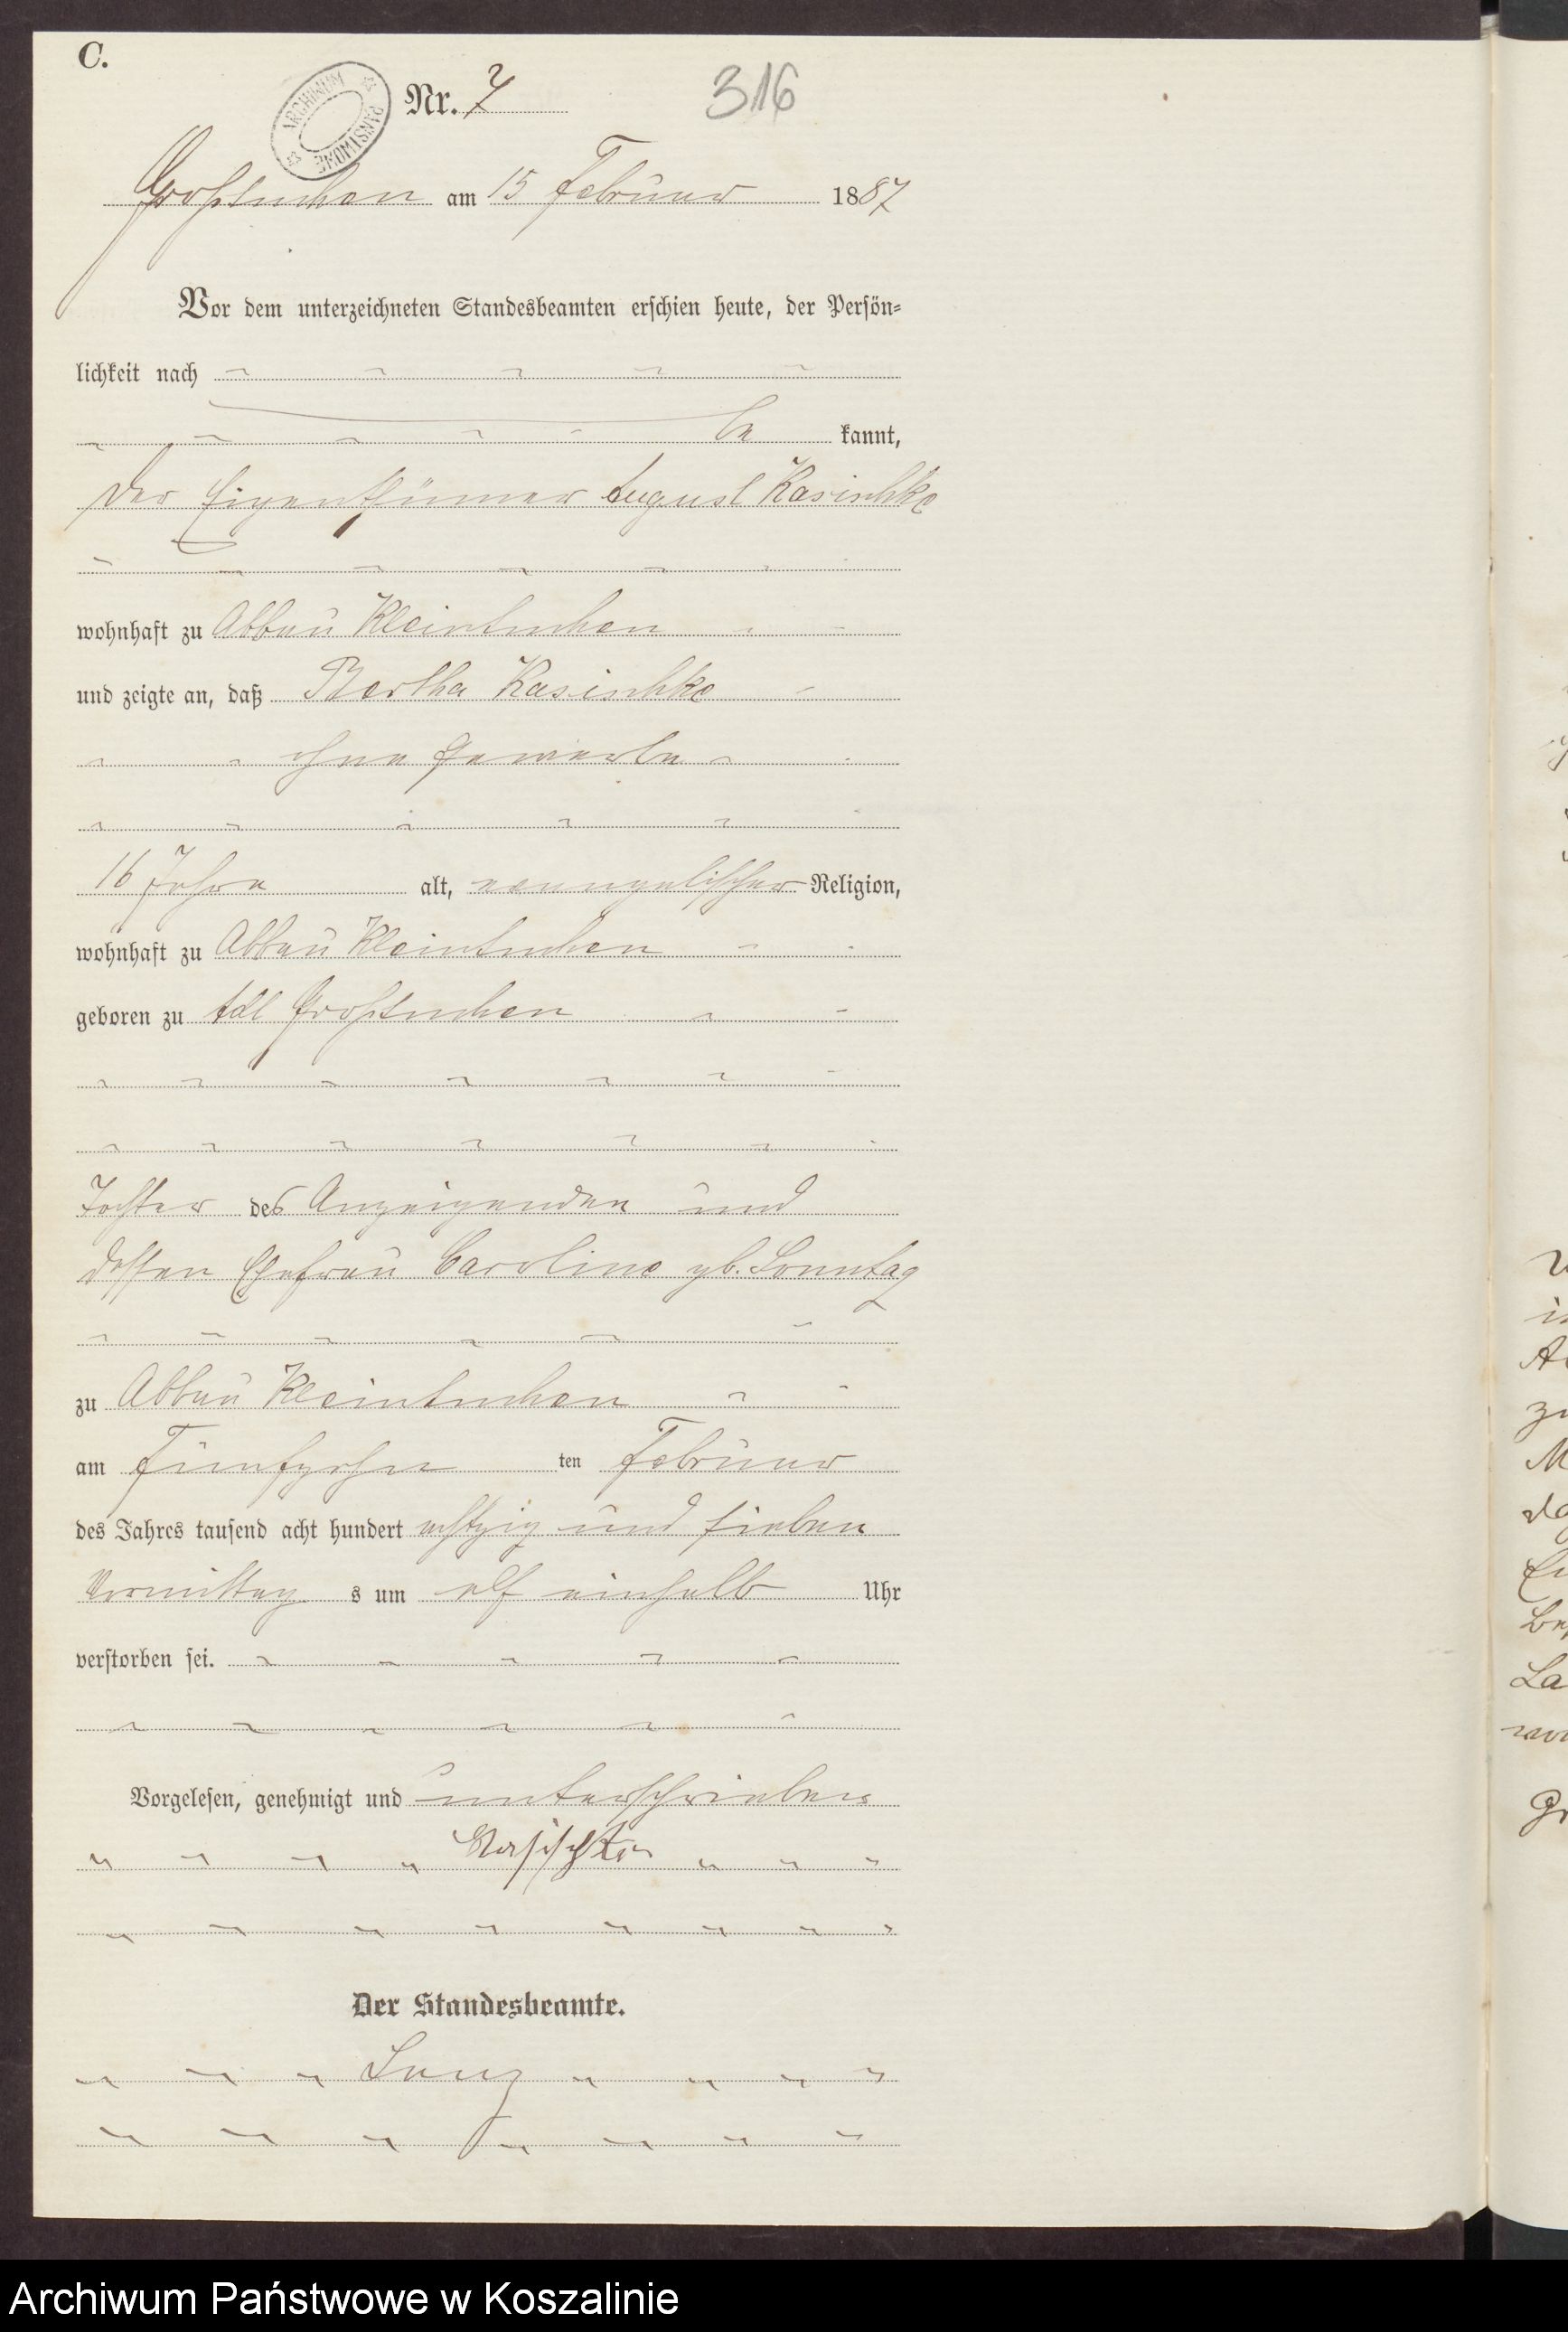 C.
ARCHIWUM PAŃSTWOWE
Nr. 7 316
Großtuchen am 15 Februar 1887
Vor dem unterzeichneten Standesbeamten erschien heute, der Persön-
lichkeit nach
be kannt,
der Eigenthümer August Kasischke
wohnhaft zu Abbau Kleintuchen
und zeigte an, daß Bertha Kasischke
ohne Gewerbe
16 Jahre alt, evangelischer Religion,
wohnhaft zu Abbau Kleintuchen
geboren zu Adl Großtuchen
Tochter des Anzeigenden und
dessen Ehefrau Caroline gb. Sonntag
zu Abbau Kleintuchen
am Fünfzehn ten Februar
des Jahres tausend acht hundert achtzig und sieben
Vormittag s um elf einhalb Uhr
verstorben sei.
Vorgelesen, genehmigt und unterschrieben
Kasischke
Der Standesbeamte.
Archiwum Państwowe w Koszalinie